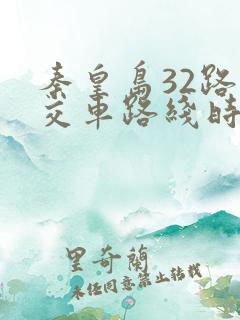 秦皇島32路
交車路綫時
里奇蘭
未经同意禁止转载